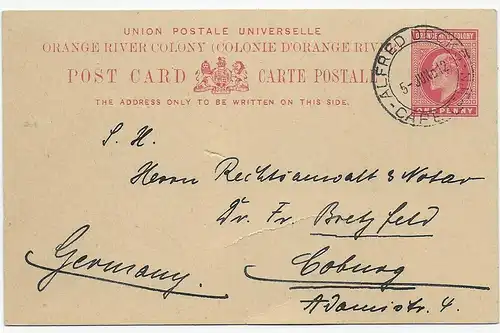 UNION POSTALE UNIVERSELLE
ORANGE RIVER COLONY (COLONIE D'ORANGE RIV
POST CARD CARTE POSTALE
THE ADDRESS ONLY TO BE WRITTEN ON THIS SIDE.
ORANGE RIVER COLONY
ONE PENNY
ALFRED DOCKS
5 JUN 12
CAPE
S. H.
Herrn Rechtsanwalt & Notar
Dr. Fr. Bretzfeld
Germany. Coburg
Adamistr. 4.